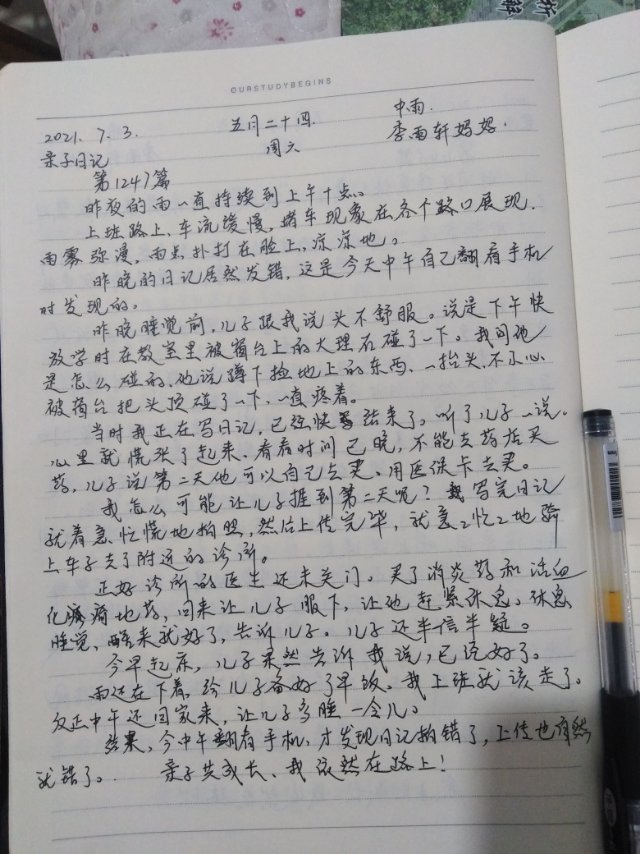 OURSTUDYBEGINS
2021. 7. 3. 五月二十四. 中雨.
亲子日记 周六 李雨轩妈妈.
第1247篇
昨夜的雨一直持续到上午十点。
上班路上,车流缓慢,堵车现象在各个路口展现.
雨雾弥漫,雨点扑打在脸上,凉凉地。
昨晚的日记居然发错,这是今天中午自己翻看手机
时发现的。
昨晚睡觉前,儿子跟我说头不舒服。说是下午快
放学时在教室里被窗台上的大理石碰了一下。我问他
是怎么碰的,他说蹲下捡地上的东西,一抬头,不小心
被窗台把头顶碰了一下,一直疼着。
当时我正在写日记,已经快结束了。听了儿子一说。
心里就慌张了起来,看看时间已晚,不能去药店买
药,儿子说第二天他可以自己去买。用医保卡去买。
我怎么可能让儿子捱到第二天呢?我写完日记
就着急忙慌地拍照,然后上传完毕,就急急忙忙地骑
上车子去了附近的诊所。
正好诊所的医生还未关门。买了消炎药和活血
化瘀痛地药,回来让儿子服下,让他赶紧休息。休息
睡觉,醒来就好了,告诉儿子。儿子还半信半疑。
今早起床,儿子果然告诉我说,已经好了。
雨还在下着,给儿子备好了早饭。我上班就该走了。
反正中午还回家来,让儿子多睡一会儿。
结果,今中午翻看手机,才发现日记拍错了,上传也自然
就错了。 亲子共成长、我依然在路上!